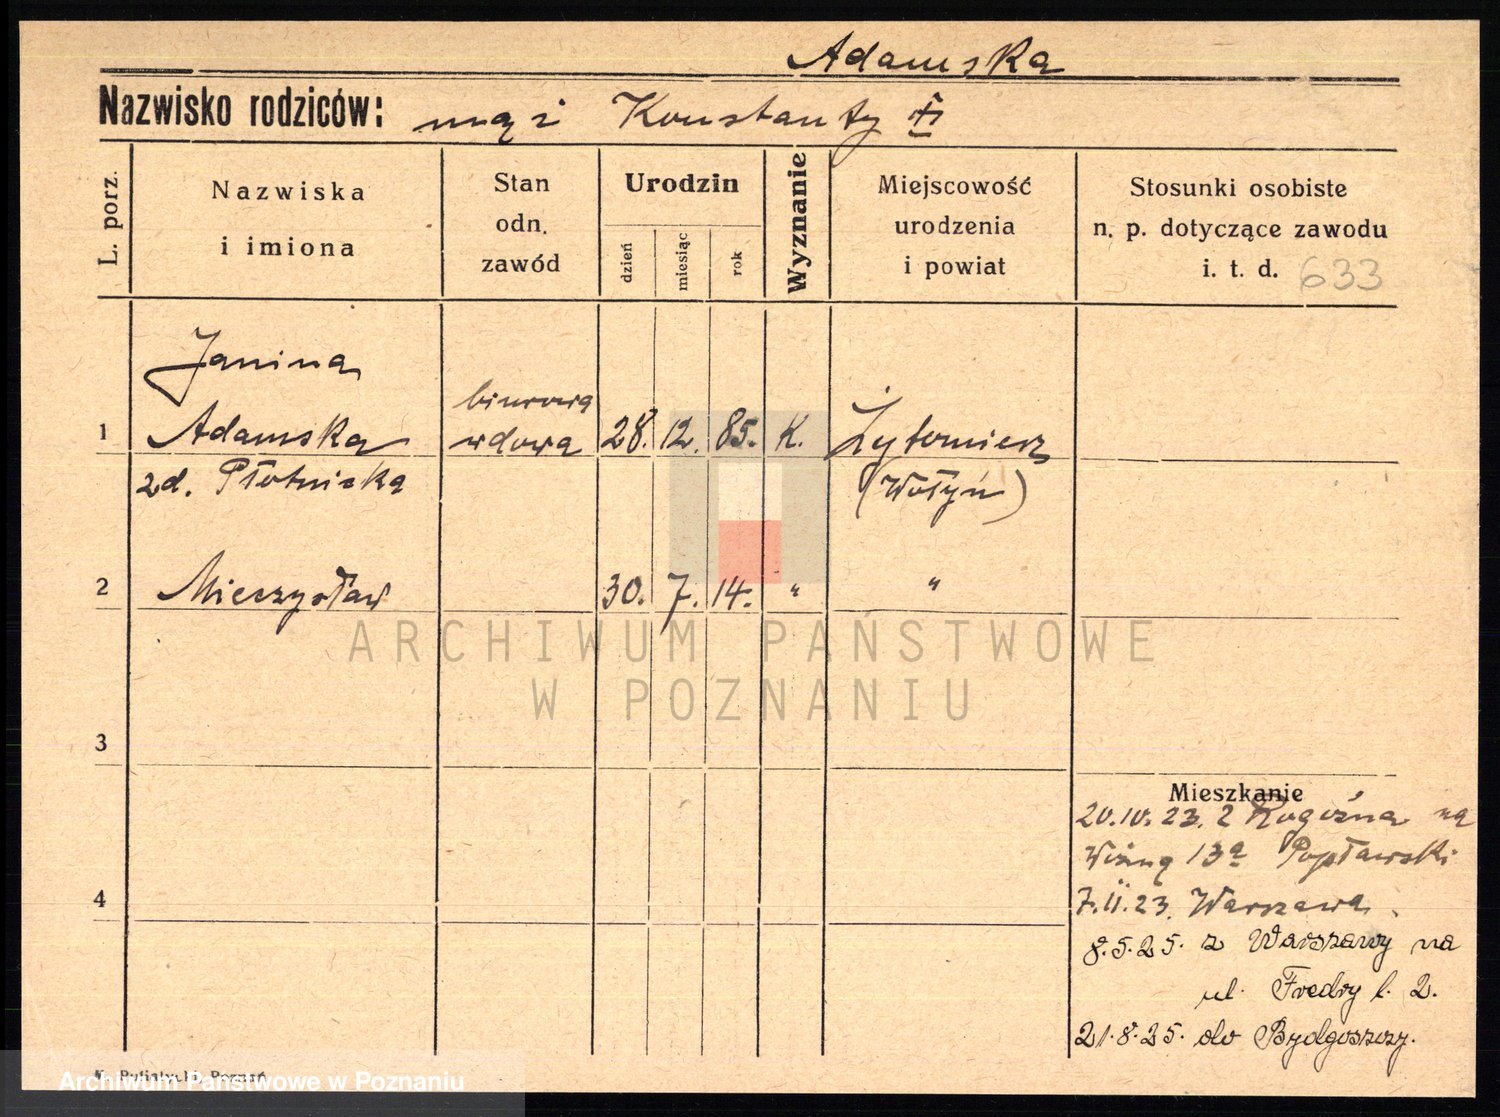 Adamska
Nazwisko rodziców: mąż Konstanty
L. porz.
Nazwiska
i imiona
Stan
odn.
zawód
Urodzin
dzień
miesiąc
rok
Wyznanie
Miejscowość
urodzenia
i powiat
Stosunki osobiste
n. p. dotyczące zawodu
i. t. d. 633
Janina
biurowa
1 Adamska wdowa 28. 12. 85. K. Żytomierz
zd. Płotnicka (Wołyń)
2 Mieczysław 30. 7. 14. " "
ARCHIWUM PAŃSTWOWE
W POZNANIU
3
4
Mieszkanie
20.10.23. z Rogoźna na
13a Popławski
7.11.23. Warszawa.
8.5.25. z Warszawy na
ul. Fredry l. 2.
21.8.25. do Bydgoszczy.
Poznań
Archiwum Państwowe w Poznaniu